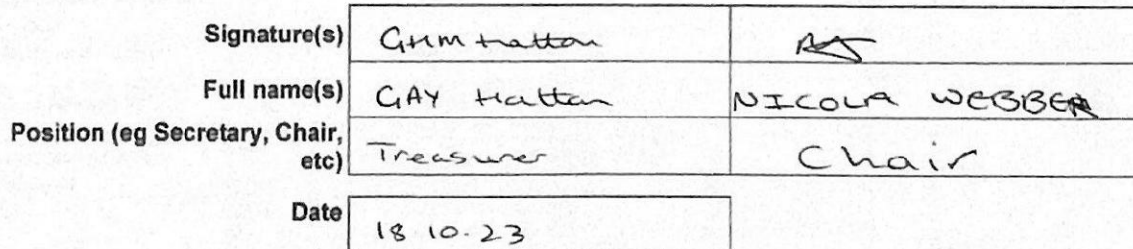 Signature(s) GHM Hatton
Full name(s) GAY Hatton NICOLA WEBBER
Position (eg Secretary, Chair,
etc) Treasurer Chair
Date 18.10.23